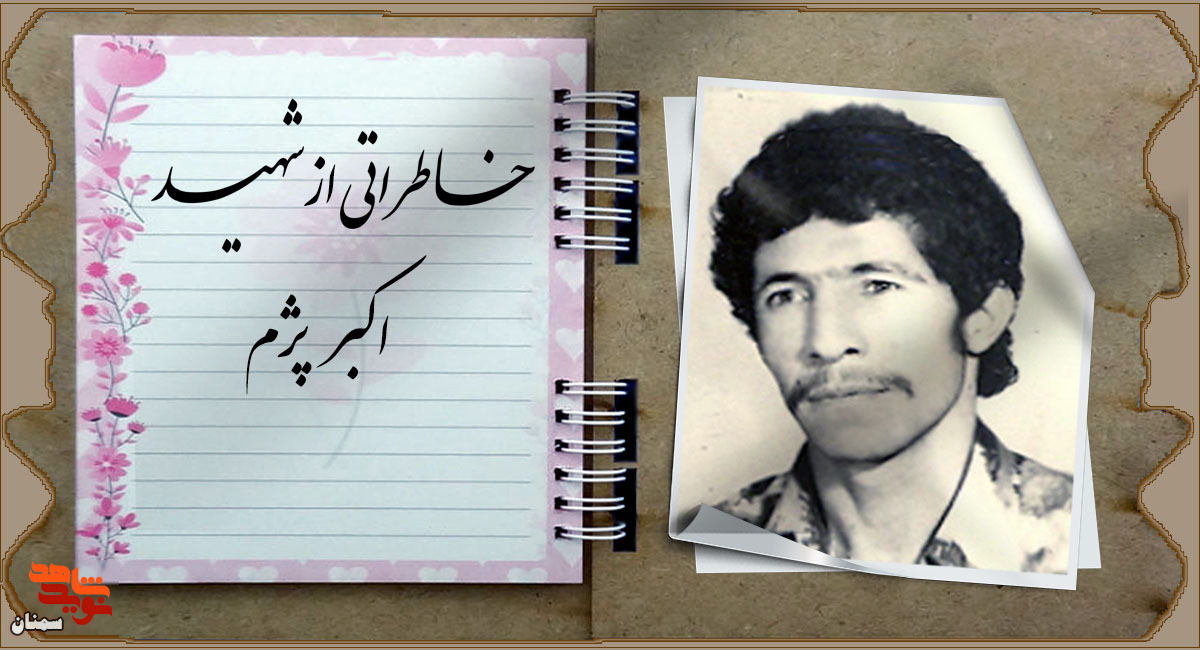 خاطراتی از شهید
اکبر پژم
نوید شاهد
سمنان